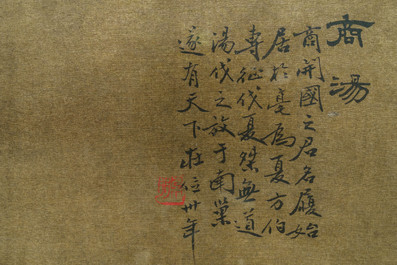 商湯
商開國之君名履始
居於亳為夏方伯
專征伐夏桀無道
湯伐之放于南巢
遂有天下在位卅年